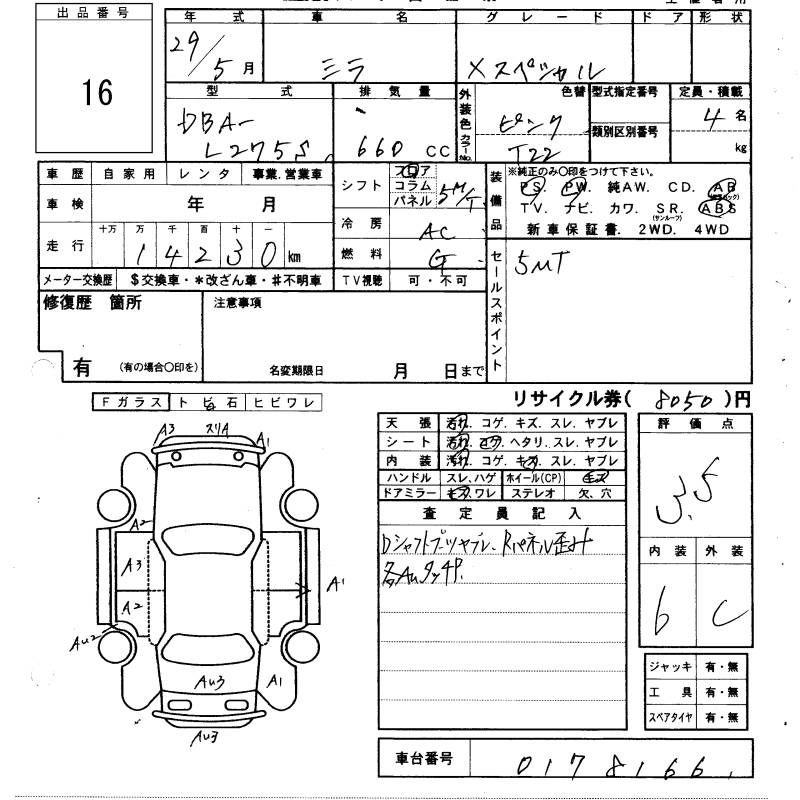 出品番号
16
年式 車名 グレード ドア 形状
29/5月 ミラ Xスペシャル
型式 排気量 外装色 カラーNo. 色替 型式指定番号 類別区別番号 定員・積載
DBA-L275S 660 CC ピンク T22 4名 kg
車歴 自家用 レンタ 事業.営業車
車検 年 月
走行 十万 万 千 百 十 一
14230 km
メーター交換歴 $交換車・*改ざん車・#不明車
シフト フロア コラム パネル 5M/T
冷房 AC
燃料 G
TV視聴 可・不可
装備品
※純正のみ〇印をつけて下さい。
PS. PW. 純AW. CD. AB
TV. ナビ. カワ. SR.(サンルーフ) ABS
新車保証書. 2WD. 4WD
セールスポイント
5MT
修復歴 箇所
有 (有の場合〇印を)
注意事項
名変期限日 月 日まで
リサイクル券( 8050 )円
Fガラス トビ石 ヒビワレ
天張 汚れ. コゲ. キズ. スレ. ヤブレ
シート 汚れ. コゲ. ヘタリ. スレ. ヤブレ
内装 汚れ. コゲ. キズ. スレ. ヤブレ
ハンドル スレ.ハゲ ホイール(CP) キズ
ドアミラー キズ.ワレ ステレオ 欠.穴
評価点
3.5
内装 外装
6 C
査定員記入
Dシャフトブーツヤブレ、Rパネル歪み
各AuタッチP.
A3 スリA A1
A2
A3
A2
A1
Au2
Au3
A1
Au3
ジャッキ 有・無
工具 有・無
スペアタイヤ 有・無
車台番号 0178166